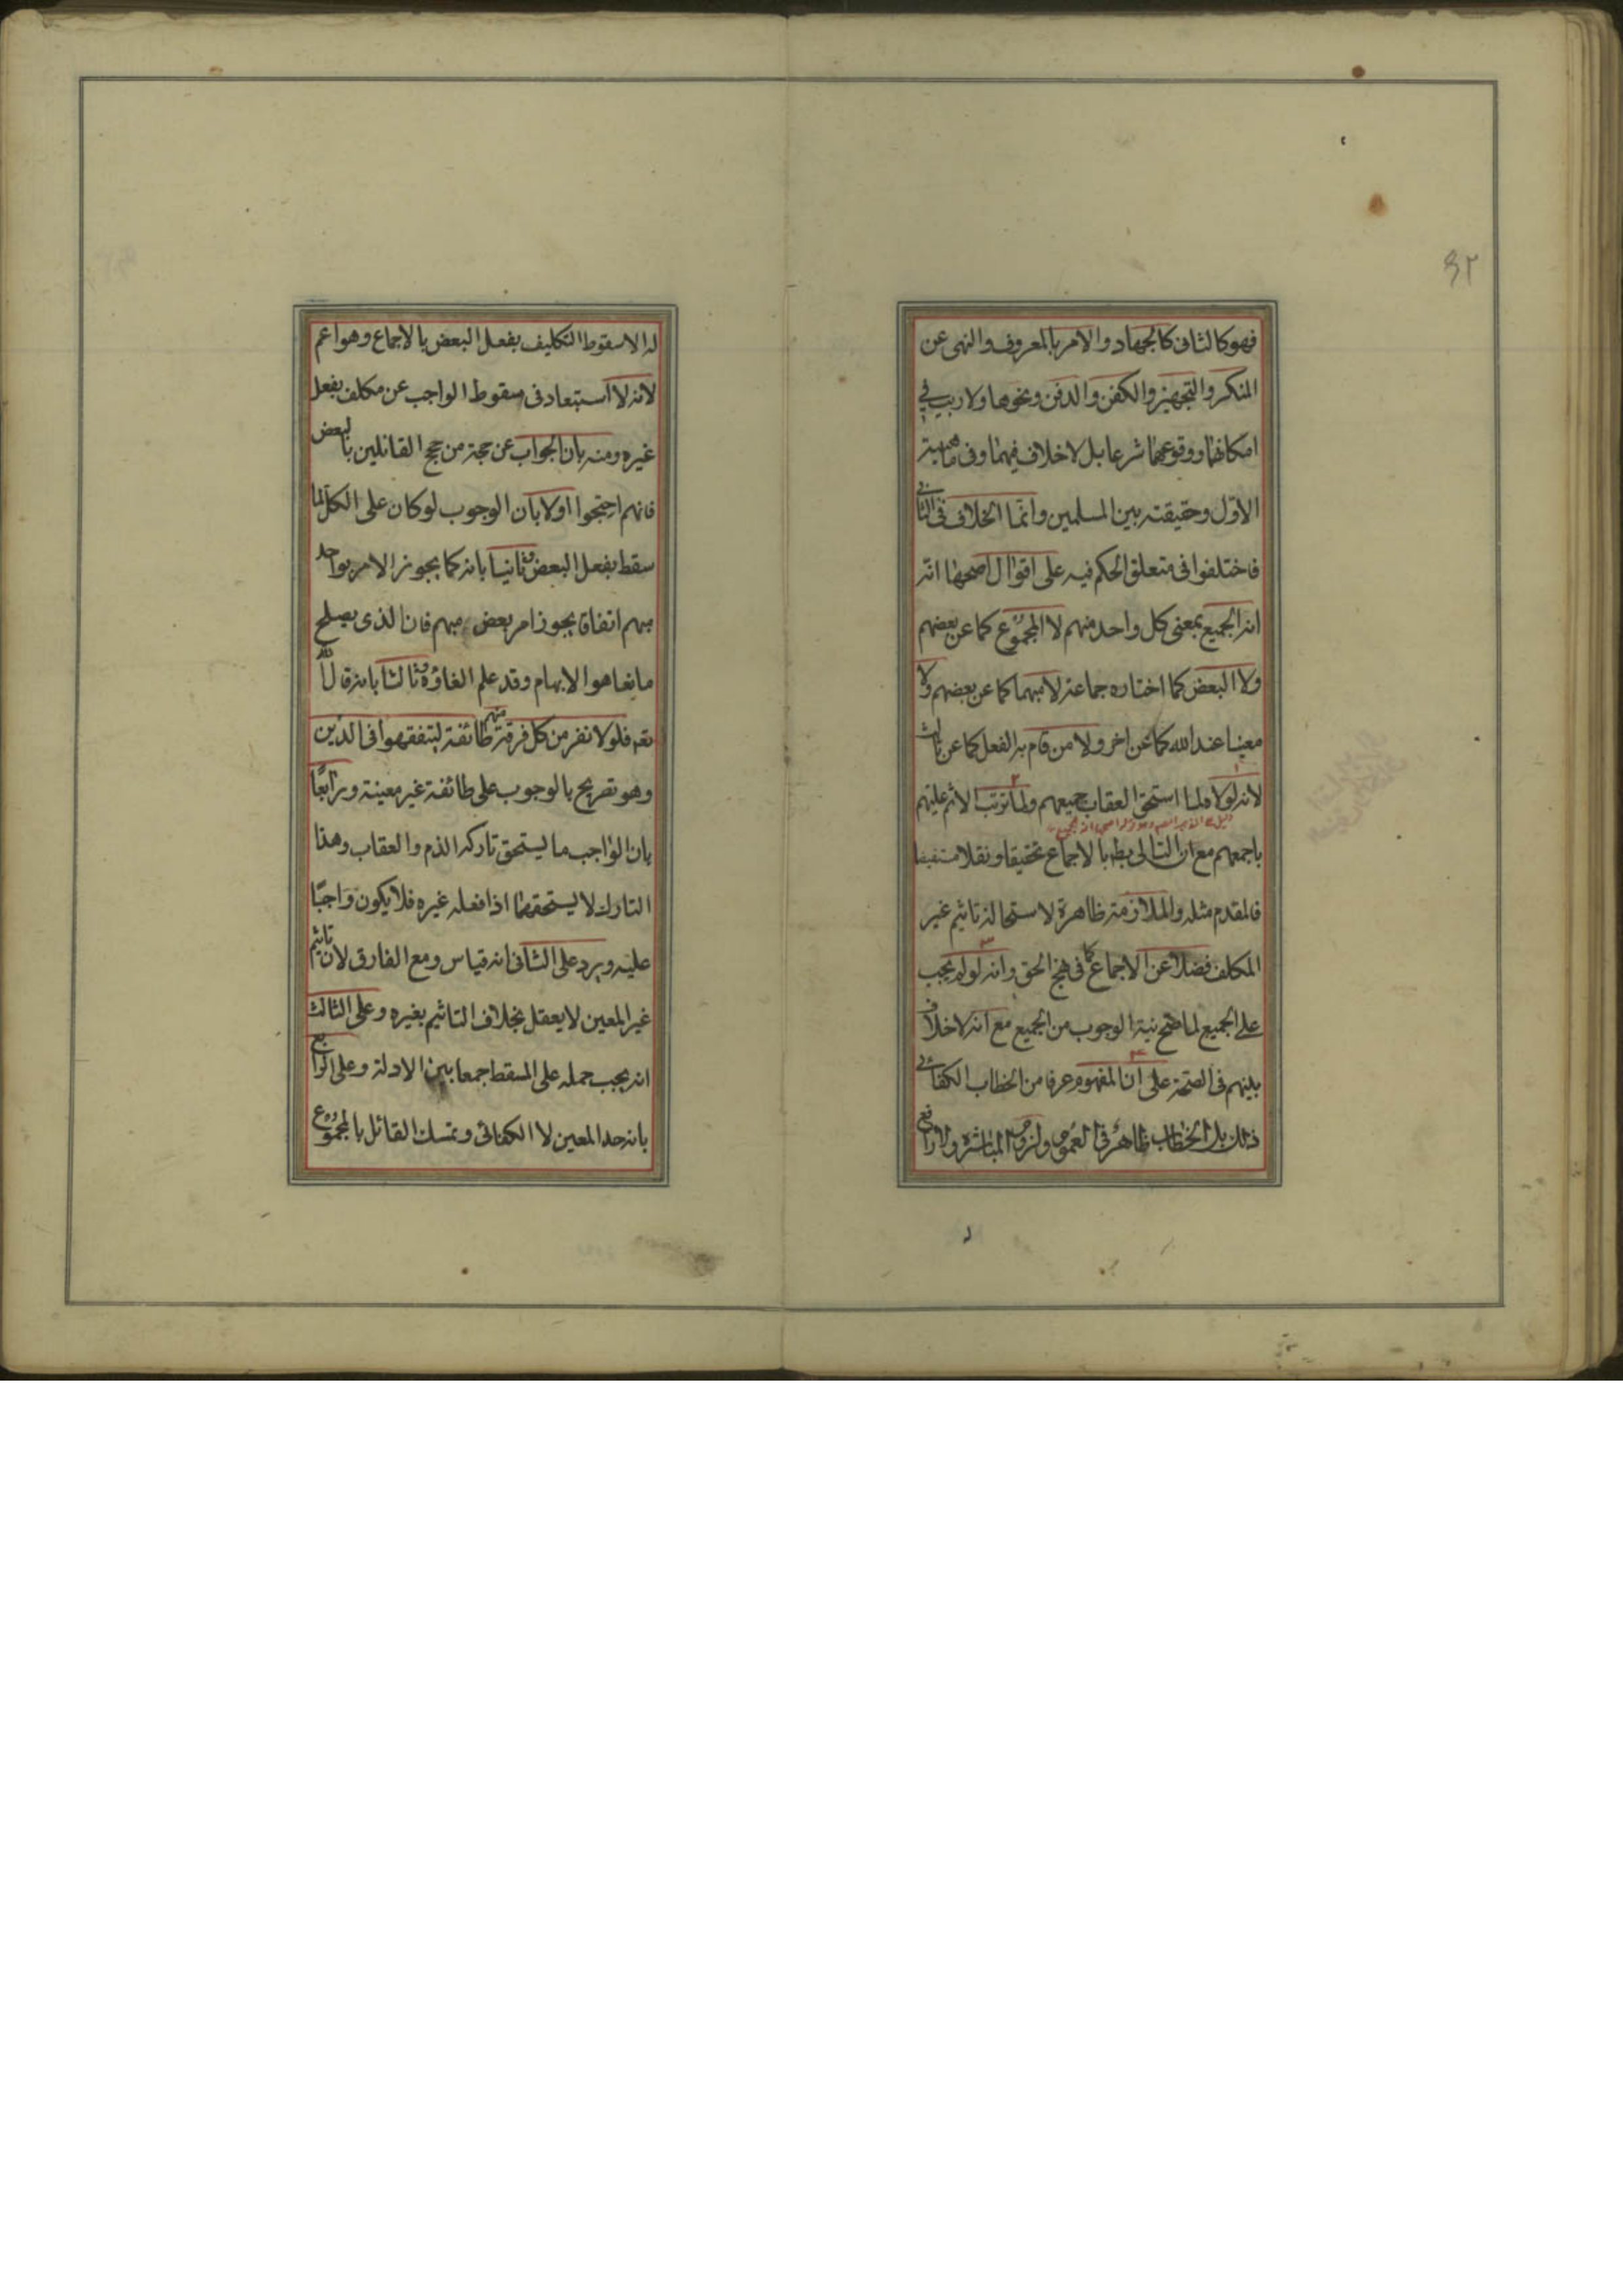 ٩٢
فهو كالثانى كالجهاد والامر بالمعروف والنهى عن
المنكر والتجهيز والكفن والدفن ونحوها ولا ريب فى
امكانهما ووقوعهما شرعا بل لا خلاف فيهما وفى ماهيته
الاوّل وحقيقته بين المسلمين وانّما الخلاف فى الثانى
فاختلفوا فى متعلق الحكم فيه على اقوال اصحها انّه
انه الجميع بمعنى كل واحد منهم لا المجموع كما عن بعضهم
ولا البعض كما اختاره جماعة لا مبهما كما عن بعضهم ولا
معينا عند الله كما عن اخر ولا من قام به الفعل كما عن ثالث
لانه لولاه لما استحق العقاب جميعهم ولما ترتب الاثم عليهم
باجمعهم مع ان التالى بط بالاجماع تحقيقا ونقلا مستفيضا
فالمقدم مثله والملازمة ظاهرة لاستحالة تاثيم غير
المكلف فضلا عن الاجماع كما فى نهج الحق وانه لو لم يجب
على الجميع لما صح نية الوجوب من الجميع مع انه لا خلاف
بينهم فى الصحة على ان المفهوم عرفا من الخطاب الكفائى
ذلك بل الخطاب ظاهر فى العموم ولزوم المباشرة ولا رافع
له الا سقوط التكليف بفعل البعض بالاجماع وهو اعم
لانه لا استبعاد فى سقوط الواجب عن مكلف بفعل
غيره ومنه بان الجواب عن حجة من حجج القائلين بالبعض
فانهم احتجوا اولا بان الوجوب لو كان على الكل لما
سقط بفعل البعض وثانيا بانه كما يجوز الامر بواحد
مبهم اتفاقا يجوز امر بعض مبهم فان الذى يصلح
مانعا هو الابهام وقد علم الغاؤه وثالثا بانه قال الله
تعم فلولا نفر من كل فرقة منهم طائفة ليتفقهوا فى الدّين
وهو تصريح بالوجوب على طائفة غير معينة ورابعًا
بان الواجب ما يستحق تاركه الذم والعقاب وهذا
التارك لا يستحقهما اذا فعله غيره فلا يكون واجبًا
عليه ويرد على الثانى انه قياس ومع الفارق لان تاثيم
غير المعين لا يعقل بخلاف التاثيم بغيره وعلى الثالث
انه يجب حمله على المسقط جمعا بين الادلة وعلى الرابع
بانه حد المعين لا الكفائى وتمسك القائل بالمجموع